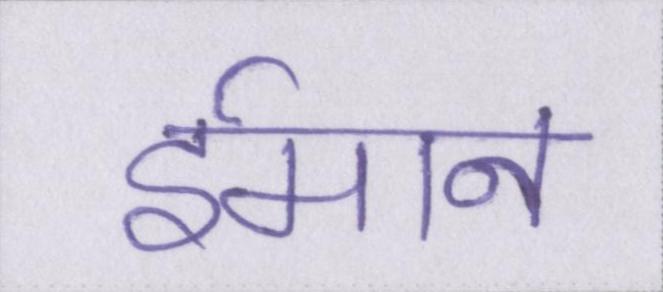 ईमान